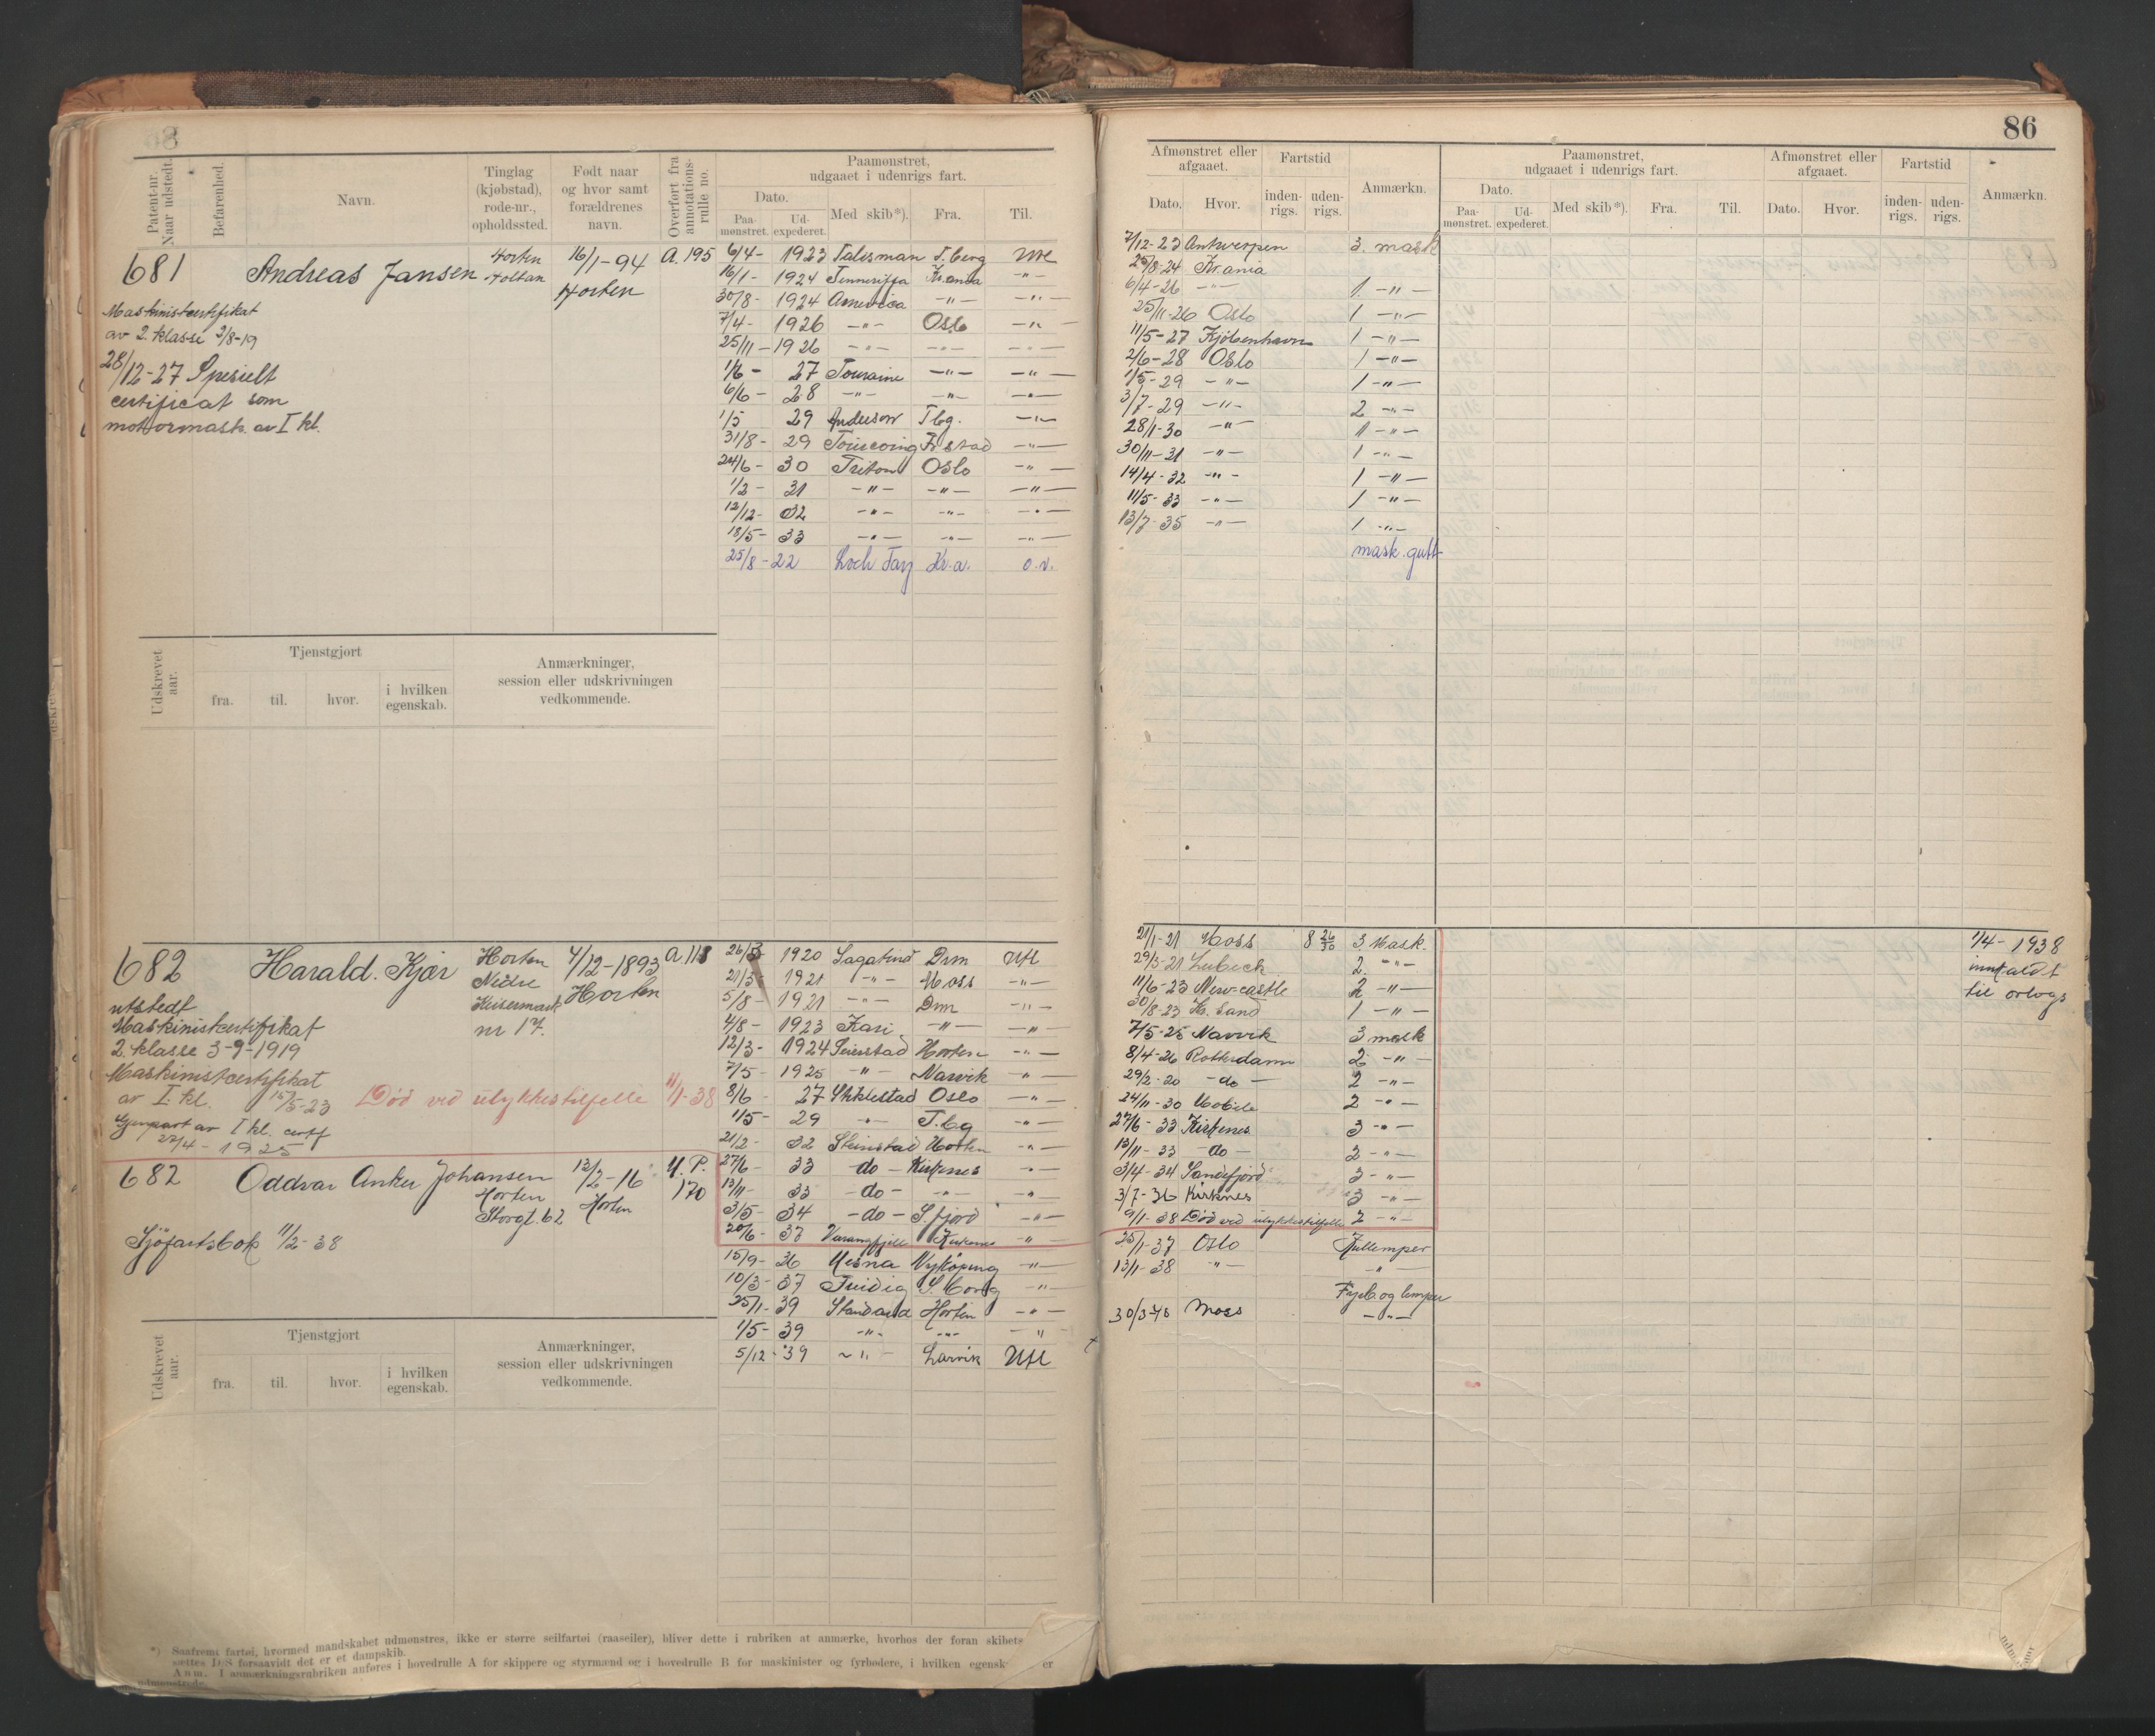 86
Patent-nr. Naar udstedt.
Befarenhed.
Navn.
Tinglag (kjøbstad), rode-nr., opholdssted.
Født naar og hvor samt forældrenes navn.
Overført fra annotations-rulle no.
Paamønstret, udgaaet i udenrigs fart.
Dato.
Paa-mønstret.
Ud-expederet.
Med skib*).
Fra.
Til.
Afmønstret eller afgaaet.
Dato.
Hvor.
Fartstid
inden-rigs.
uden-rigs.
Anmærkn.
Paamønstret, udgaaet i udenrigs fart.
Dato.
Paa-mønstret.
Ud-expederet.
Med skib*).
Fra.
Til.
Afmønstret eller afgaaet.
Dato.
Hvor.
Fartstid
inden-rigs.
uden-rigs.
Anmærkn.
681 Andreas Jansen Horten Holtan 16/1-94 Horten A. 195
Maskinistcertifikat
av 2. klasse 2/8-19
28/12-27 Spesielt
certificat som
motormask. av I kl.
6/4- 1923 Talisman T.berg
16/1- 1924 Tenneriffa Kr.ania -"-
30/8- 1924 America -"- -"-
7/4- 1926 -"- Oslo -"-
25/11- 1926 -"- -"- -"-
1/6- 27 Touraine -"- -"-
6/6- 28 -"- -"- -"-
1/5 29 Anderson Tbg. -"-
31/8- 29 Tourcoing Fr.stad -"-
24/6- 30 Triton Oslo -"-
1/2- 31 -"- -"- -"-
12/12- 32 -"- -"- -"-
18/5- 33 -"- -"- -"-
25/8-22 Loch Tay Kr.a. o.v.
7/12-23 Antwerpen 3. mask
25/8-24 Kr.ania
6/4-26 -"- 1 -"-
25/11-26 Oslo 1 -"-
11/5-27 Kjöbenhavn 1 -"-
2/6-28 Oslo 1 -"-
1/5-29 -"- 1 -"-
3/7-29 -"- 2 -"-
28/1-30 -"- 1 -"-
30/11-31 -"- 1 -"-
14/4-32 -"- 1 -"-
11/5-33 -"- 1 -"-
13/7-35 -"- 1 -"-
mask.gutt
Udskrevet aar.
Tjenstgjort
fra.
til.
hvor.
i hvilken egenskab.
Anmærkninger, session eller udskrivningen vedkommende.
682 Harald. Kjær Horten Nedre Keisermark nr 17. 4/12-1893 Horten A 118
utstedt
Maskinistcertifikat
2. klasse 3-9-1919
Maskinistcertifikat
av I. kl. 15/5-23
Død ved ulykkestilfelle 11/1-38
Gjenpart av I kl. certf
22/4-1925
26/3 1920 Sagatind Drm Utl
21/3- 1921 -"- Moss -"-
5/8- 1921 -"- Drm -"-
4/8- 1923 Kari -"- -"-
12/3- 1924 Seierstad Horten -"-
7/5- 1925 -"- Narvik -"-
8/6- 27 Stiklestad Oslo -"-
1/5- 29 -"- T.bg -"-
21/2- 32 Steinstad Horten -"-
27/6- 33 -do- Kirkenes -"-
13/11- 33 -do- -"- -"-
3/5- 34 -do- S.fjord -"-
20/6- 37 Varangfjell Kirkenes -"-
21/1-21 Moss 8 26/30 3 Mask.
29/3-21 Lubeck 2. -"-
11/6-23 New-castle 2 -"-
30/8-23 Kr. Sand 1 -"-
7/5-25 Narvik 3 mask
8/4-26 Rotterdam 2 -"-
29/2-20 -do- 2 -"-
24/11-30 Mobile 2 -"-
27/6-33 Kirkenes 3 -"-
13/11-33 -do- 2 -"-
3/4-34 Sandefjord 3 -"-
3/7-36 Kirknes 3 -"-
9/1-38 Död ved ulykkestilfelle 2 -"-
1/4-1938
innkaldt
til orlogs
682 Oddvar Anker Johansen Horten Storgt. 62 12/2-16 Horten U.P. 170
Sjöfartsbok 11/2-38
15/9- 36 Mesna Nyköping -"-
10/3- 37 Freidig S.borg -"-
25/1- 39 Standard Horten -"-
1/5- 39 -"- -"- -"-
5/12- 39 -"- Larvik Utl
25/1-37 Oslo Kullemper
13/1-38 -"- -"-
Fyrb og lemper
30/3-40 Moss -"-
Udskrevet aar.
Tjenstgjort
fra.
til.
hvor.
i hvilken egenskab.
Anmærkninger, session eller udskrivningen vedkommende.
*) Saafremt fartøi, hvormed mandskabet udmønstres, ikke er større seilfartøi (raaseiler), bliver dette i rubriken at anmærke, hvorhos der foran skibets
sættes D/S forsaavidt det er et dampskib.
Anm. I anmærkningsrubriken anføres i hovedrulle A for skippere og styrmænd og i hovedrulle B for maskinister og fyrbødere, i hvilken egensk er
udmønstrede.